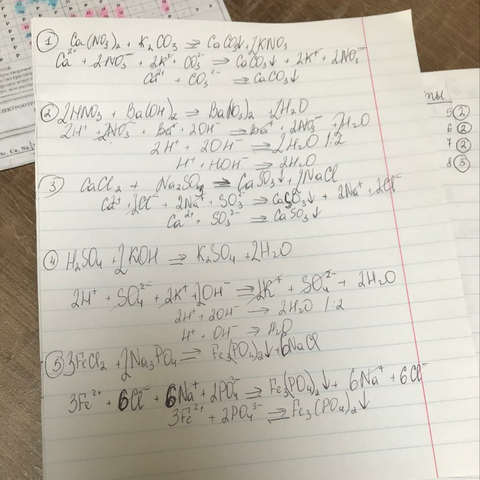 ① Ca(NO₃)₂ + K₂CO₃ ⇒ CaCO₃↓ + 2KNO₃
Ca²⁺ + 2NO₃⁻ + 2K⁺ + CO₃²⁻ ⇒ CaCO₃↓ + 2K⁺ + 2NO₃⁻
Ca²⁺ + CO₃²⁻ → CaCO₃↓
② 2HNO₃ + Ba(OH)₂ ⇒ Ba(NO₃)₂ + 2H₂O
2H⁺ + 2NO₃⁻ + Ba²⁺ + 2OH⁻ ⇒ Ba²⁺ + 2NO₃⁻ + 2H₂O
2H⁺ + 2OH⁻ ⇒ 2H₂O | :2
H⁺ + HOH⁻ ⇒ 2H₂O
③ CaCl₂ + Na₂SO₃ ⇒ CaSO₃↓ + 2NaCl
Ca²⁺ + 2Cl⁻ + 2Na⁺ + SO₃²⁻ ⇒ CaSO₃↓ + 2Na⁺ + 2Cl⁻
Ca²⁺ + SO₃²⁻ ⇒ CaSO₃↓
④ H₂SO₄ + 2KOH ⇒ K₂SO₄ + 2H₂O
2H⁺ + SO₄²⁻ + 2K⁺ + 2OH⁻ ⇒ 2K⁺ + SO₄²⁻ + 2H₂O
2H⁺ + 2OH⁻ → 2H₂O | :2
H⁺ + OH⁻ → H₂O
⑤ 3FeCl₂ + 2Na₃PO₄ ⇒ Fe₃(PO₄)₂↓ + 6NaCl
3Fe²⁺ + 6Cl⁻ + 6Na⁺ + 2PO₄³⁻ ⇒ Fe₃(PO₄)₂↓ + 6Na⁺ + 6Cl⁻
3Fe²⁺ + 2PO₄³⁻ ⇒ Fe₃(PO₄)₂↓
5 ②
6 ②
7 ②
8 ③